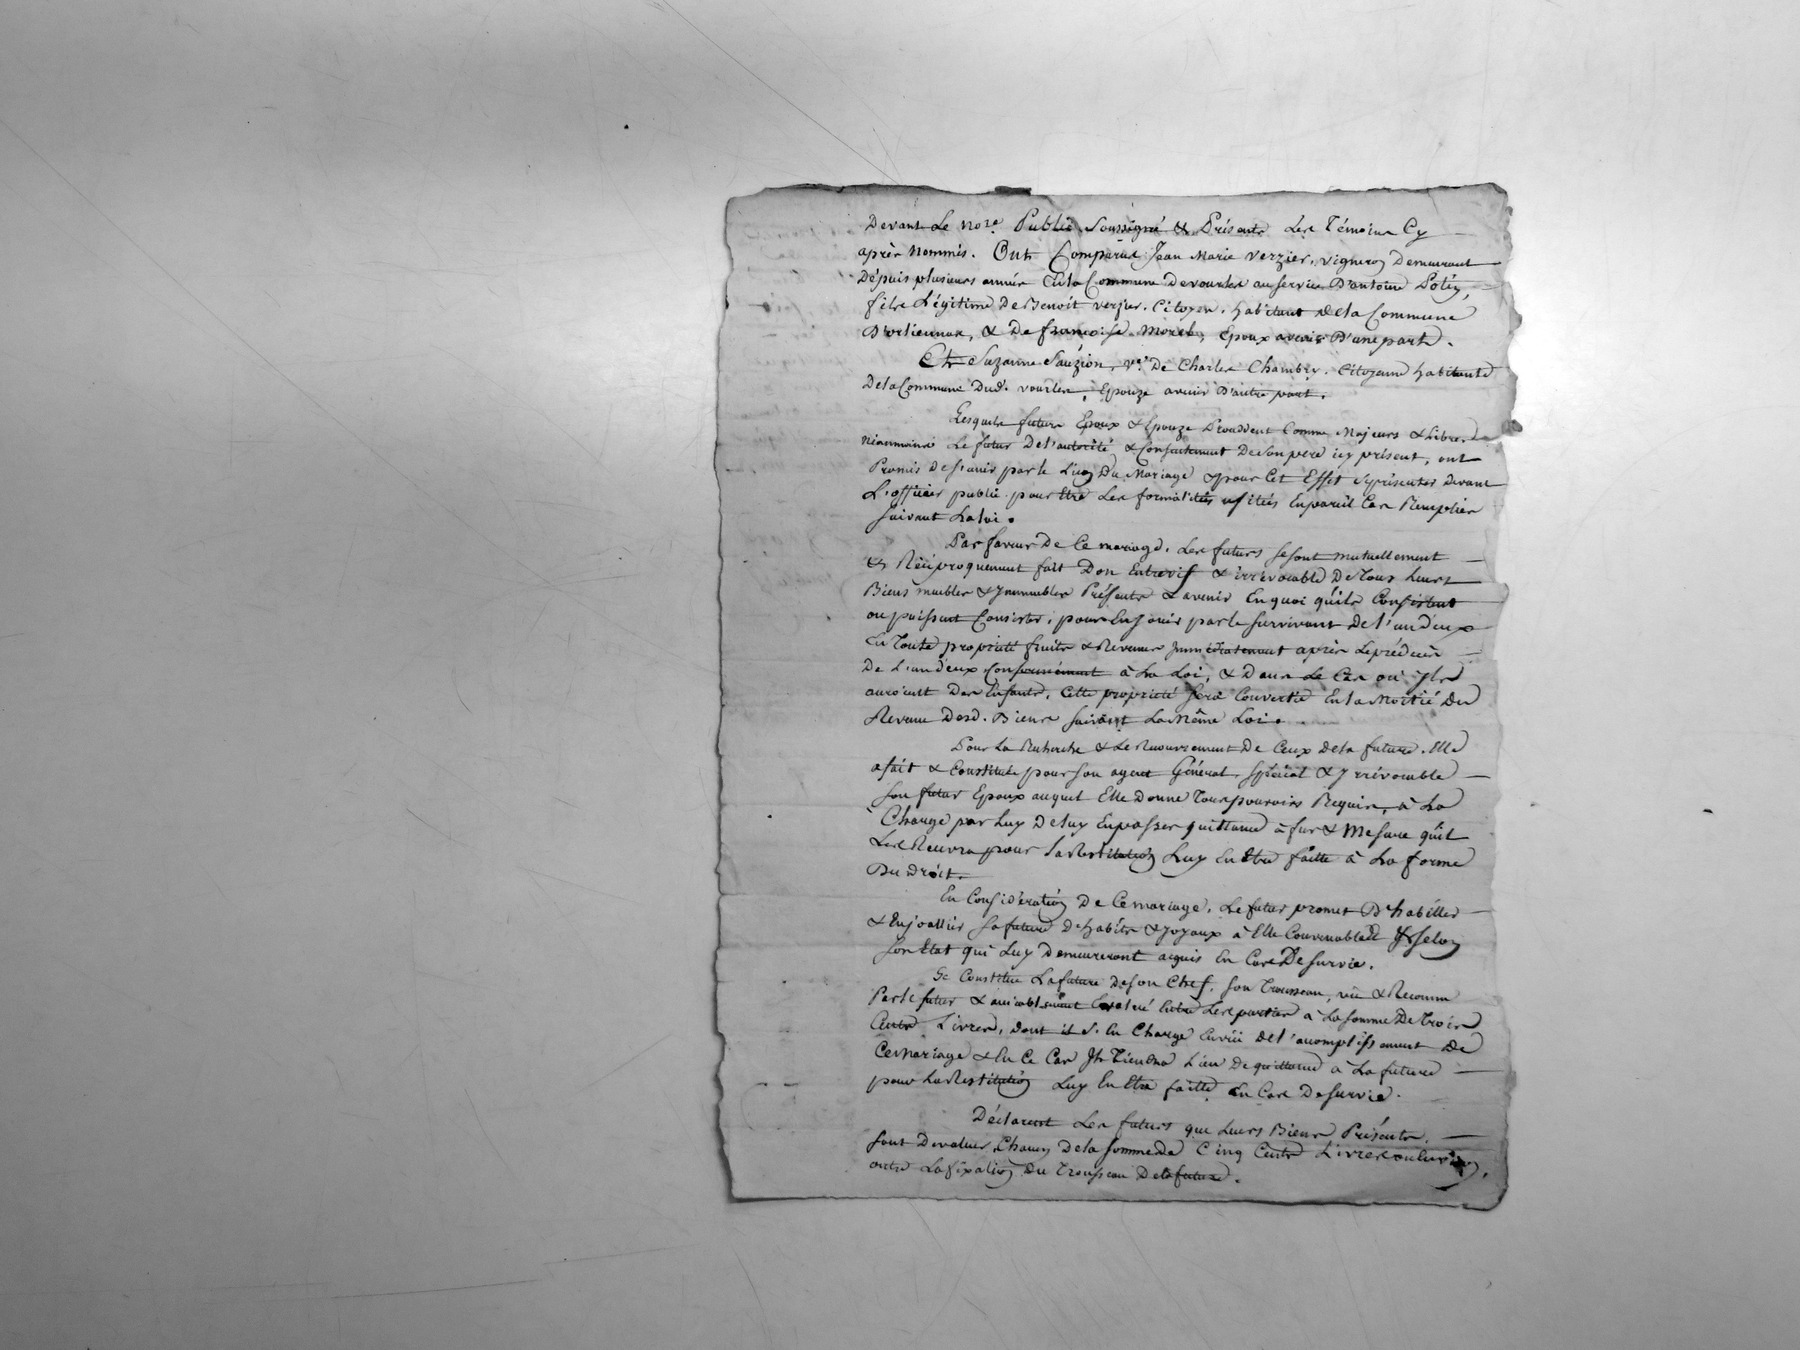 Devant Le no.re Public Soussigné & Présents Les Témoins Cy
après Nommés. Ont Comparus Jean Marie Verzier, vigneron Demeurant
Dépuis plusieurs année En la Commune de vourles au service D'antoine
fils Légitime De Benoit verjier. Citoyen. habitant de la Commune
D'orliennas, & De françoise Morel, Epoux avenir D'une part.
Et Suzanne Sauzion, v.e De Charles Chambry. Citoyenne habitante
De la Commune Dud. vourles, Epouze avenir D'autre part.
Lesquels futurs Epoux & Epouze Procédent Comme Majeurs & Libres
Néanmoins Le futur De l'autorité & Consentement De Son pere icy présent, ont
Promis De s'unir par le Lien Du Mariage & pour Cet Effet Se présenter Devant
L'officier public pour Etre Les formalités usitées En pareil Cas Remplies
suivant La loi.
Par faveur De Ce mariage. Les futurs se sont mutuellement
& Réciproquement fait Don Entrevif & irrévocable De Tous Leurs
Biens meubles & Immeubles Présents & avenir En quoi qu'ils Consistent
ou puissent Consister, pour En Jouir par le Survivant De l'un d'eux
En Toute propriété fruits & Revenus Immédiatement après Le prédécès
De L'un d'eux Conformément à La Loi, & Dans Le Cas où Ils
auroient Des Enfants, Cette propriété Sera Convertie En la Moitié Du
Revenu Desd. Biens suivant La Même Loi.
Pour La Recherche & Le Recouvrement De Ceux De la future. Elle
a fait & Constitué pour son agent Général, Spécial & Irrévocable
Son futur Epoux auquel Elle Donne Tous pouvoirs Requis, à La
Charge par Luy De luy En passer quittance à fur & Mesure qu'il
Les Recevra pour la Restitution Luy En Etre faitte à La forme
Du Droit.
En Considération De Ce mariage, Le futur promet D'habiller
& Enjoaillier sa future D'habits & Joyaux à Elle Convenables & selon
son Etat qui Luy Demeureront acquis En Cas De survie.
Se Constitue La future De son Chef. Son Trousseau, vu & Reconnu
Par le futur & amicablement Evalué Entre Les parties à La somme De Trois
Cents Livres, dont il S'en Charge En vüe De l'accomplissement De
Ce Mariage & En Ce Cas Il Tiendra Lieu De quittance à La future
pour La Restitution Luy En Etre faitte En Cas De Survie.
Déclarent Les futurs que Leurs Biens Présents,
sont De valeur Chacun De la somme De Cinq Cents Livres
outre La fixation Du Trousseau De la future.